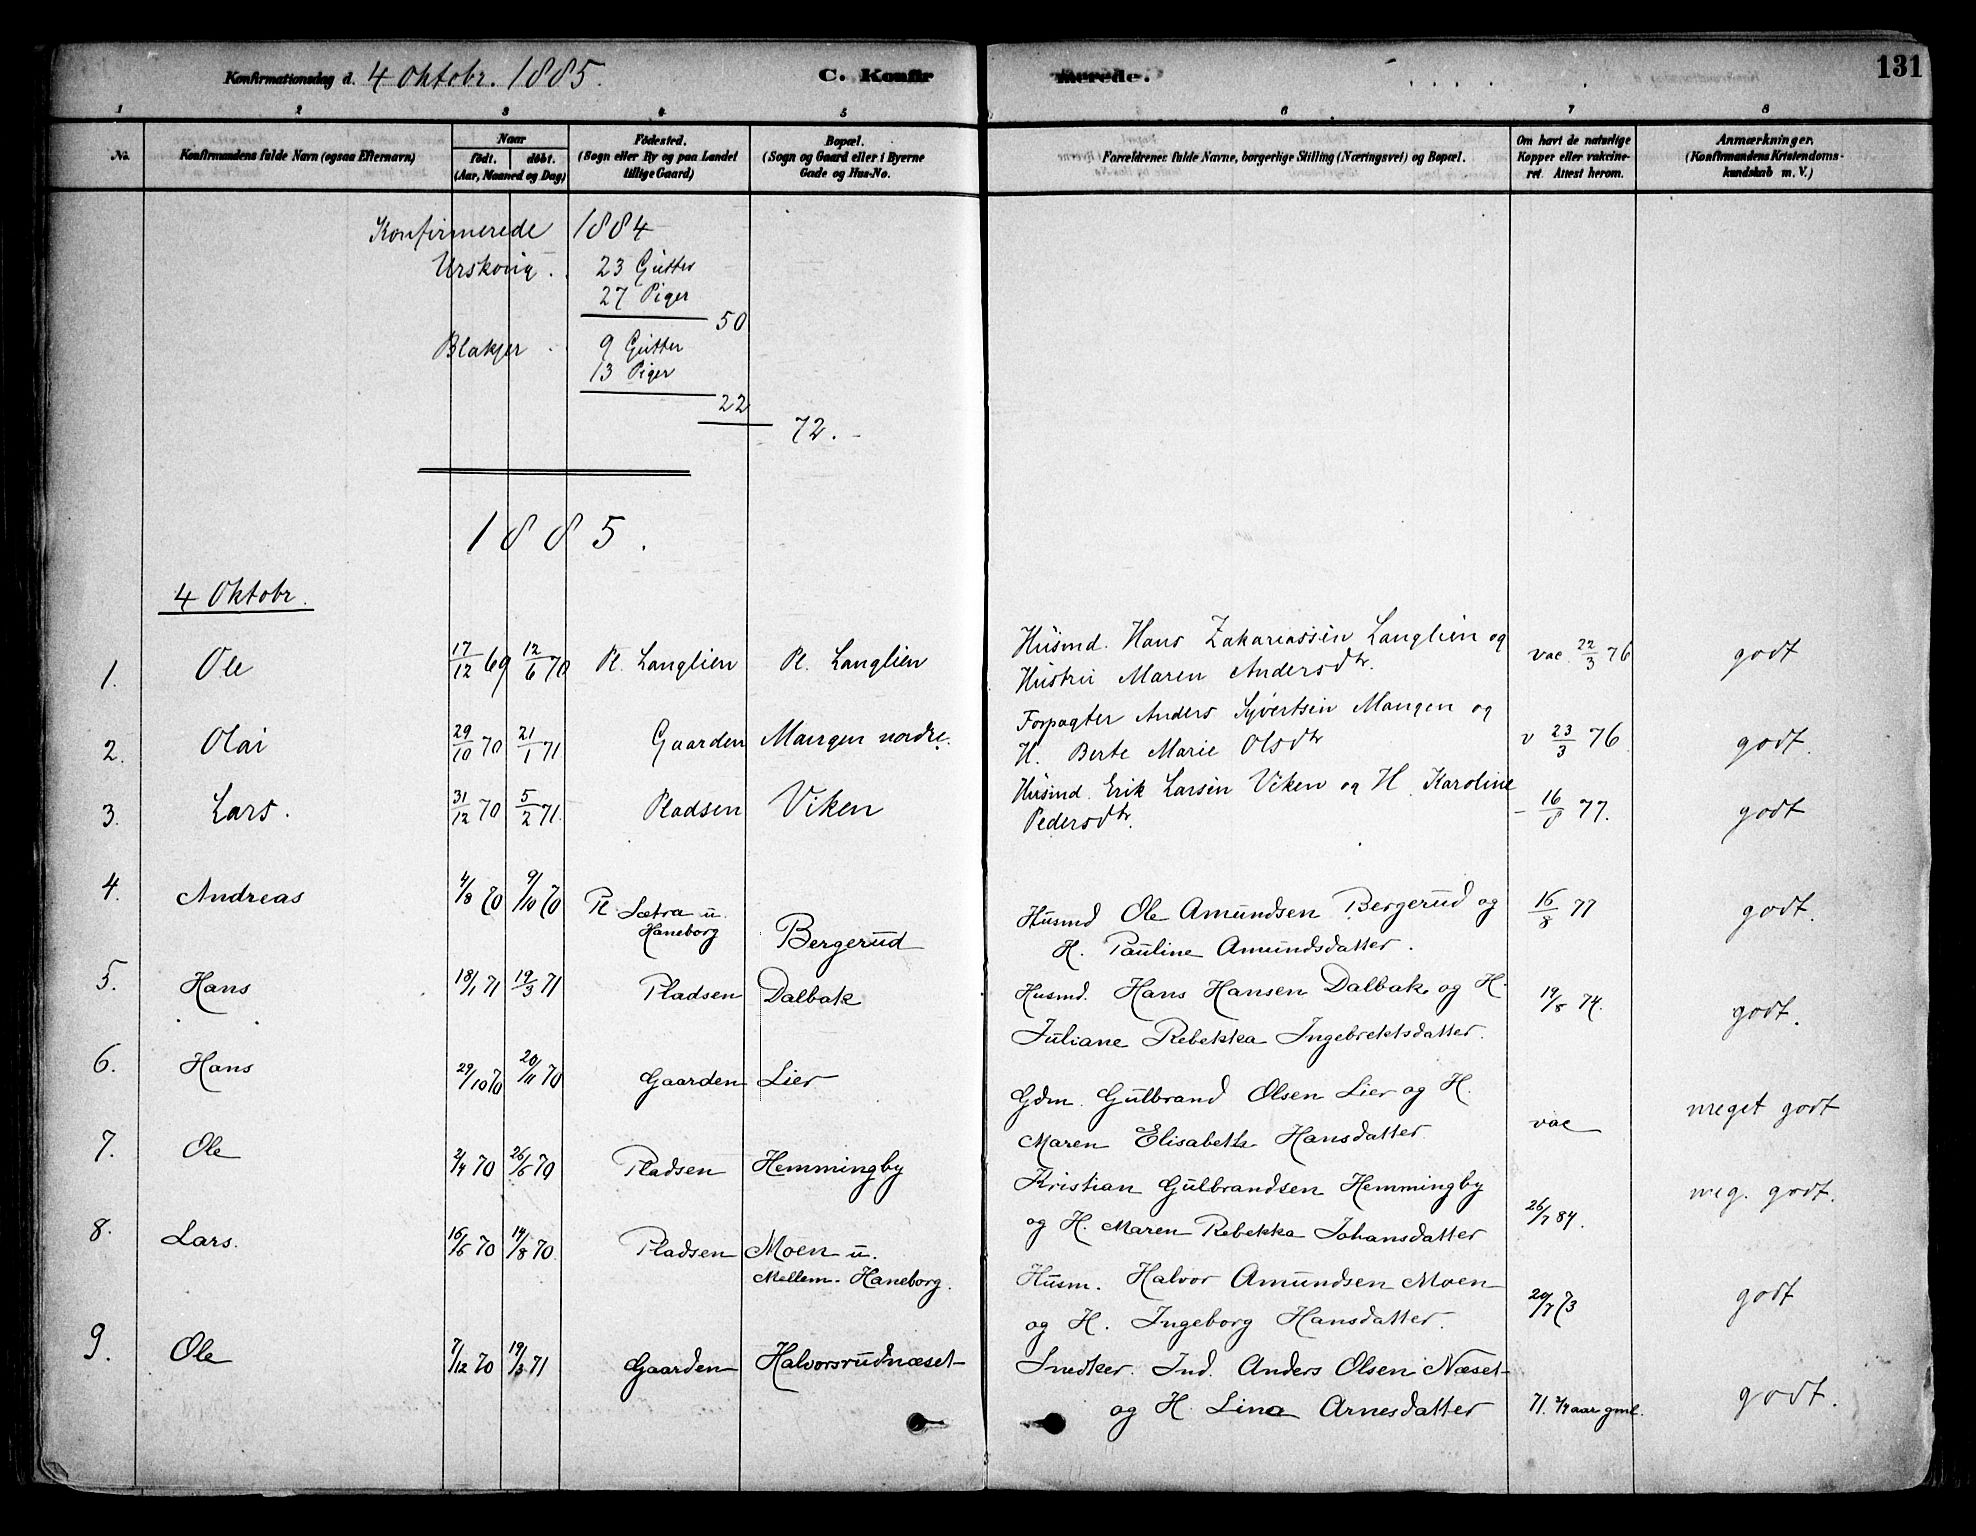 Konfirmationsdag d. 4 Oktobr. 1885. C. Konfirmerede. 131
1 2 3 4 5 6 7 8
No. Konfirmandens fulde Navn (ogsaa Efternavn) Naar født. døbt. (Aar, Maaned og Dag) Fødested. (Sogn eller By og paa Landet tillige Gaard) Bopæl. (Sogn og Gaard eller i Byerne Gade og Hus-No. Forældrenes fulde Navne, borgerlige Stilling (Næringsvei) og Bopæl. Om havt de naturlige Kopper eller vaccineret. Attest herom. Anmærkninger. (Konfirmandens Kristendomskundskab m. V.)
Konfirmerede 1884
Urskoug . . 23 Gutter
27 Piger
50
Blakjer . 9 Gutter
13 Piger
22
72.
1885.
4 Oktobr.
1. Ole 17/12 69 12/6 70 Pl. Langlien Pl. Langlien Husmd. Hans Zakariassen Langlien og vac. 22/3 76 godt
Hustru Maren Andersdtr.
2. Olai 29/10 70 21/1 71 Gaarden Mangen nordre. Forpagter Anders Syvertsen Mangen og v 23/3 76 godt.
H. Berte Marie Olsdtr
3. Lars. 31/12 70 5/2 71. Pladsen Viken Husmd. Erik Larsen Viken og H. Karoline – 16/8 77. godt
Pedersdtr.
4. Andreas 4/8 70 9/10 70 Pl Sætra u. Haneborg Bergerud Husmd Ole Amundsen Bergerud og 16/8 77 godt.
H. Pauline Amundsdatter.
5. Hans 18/1 71 19/3 71 Pladsen Dalbak Husmd. Hans Hansen Dalbak og H. 19/8 74. godt.
Juliane Rebekka Ingebrektsdatter.
6. Hans 29/10 70 20/11 70 Gaarden Lier Gdm. Gulbrand Olsen Lier og H. vac meget godt
Maren Elisabeth Hansdatter
7. Ole 2/4 70 26/5 70 Pladsen Hemmingby Kristian Gulbrandsen Hemmingby 26/7 84. meg. godt.
og H. Maren Rebekka Johansdatter
8. Lars. 16/6 70 14/8 70. Pladsen Moen u. Mellem-Haneborg. Husm. Halvor Amundsen Moen 29/7 73 godt
og H. Ingeborg Hansdatter.
9. Ole 7/12 70 19/3 71 Gaarden Halvorsrudnæset Snedker. Ind. Anders Olsen Næset
og H. Lina Arnesdatter 71. 2/4 aar gml. godt.